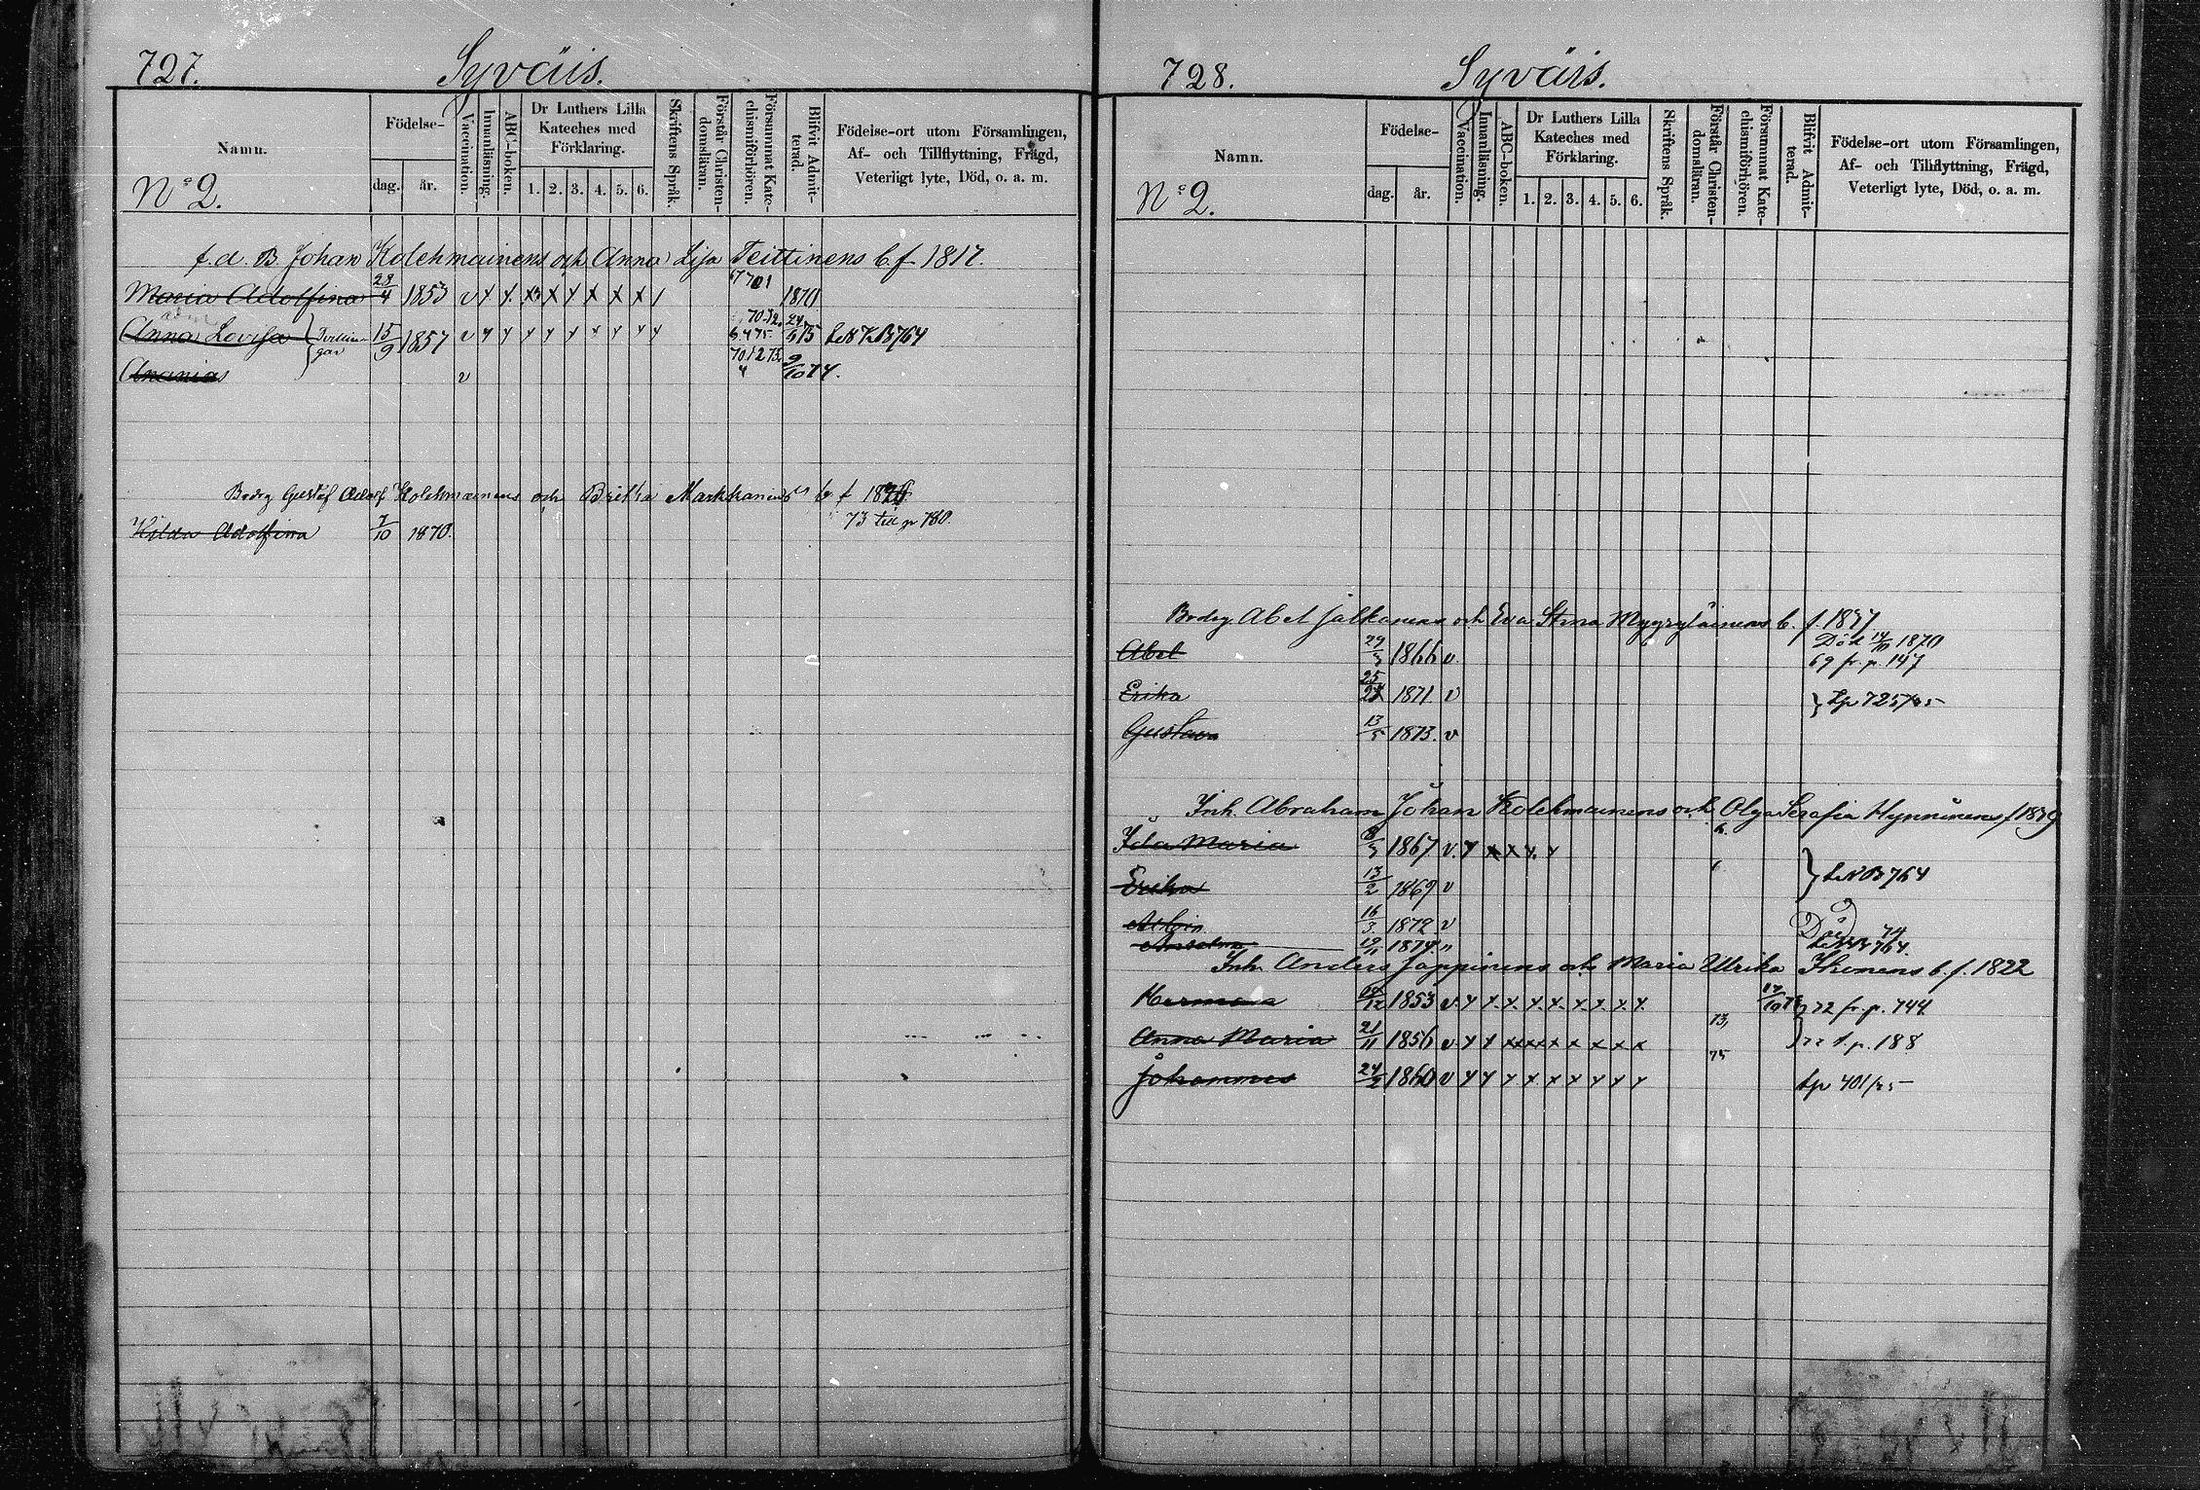 727. Syväis.
Namn. Födelse- dag. år. Vaccination. Innanläsning. ABC-boken. Dr Luthers Lilla Kateches med Förklaring. 1. 2. 3. 4. 5. 6. Skriftens Språk. Förstår Christendomsläran. Försummat Katechismiförhören. Blifvit Admitterad. Födelse-ort utom Församlingen, Af- och Tillflyttning, Frägd, Veterligt lyte, Död, o. a. m.
No 2.
f. d. B. Johan Kolehmainens och Anna Lisa Teittinens b. f 1817.
Maria Adolfina 23/4 1853 v 1870
Anna Lovisa Tvillingar 15/9 1857 v 24/5 75 764
Ananias v 9/10 74.
Bodrg Gustaf Adolf Kolehmainens och Britha Markkanens b f
73 till p 780.
Hilda Adolfina 7/10 1870.
728. Syväis.
Namn. Födelse- dag. år. Vaccination. Innanläsning. ABC-boken. Dr Luthers Lilla Kateches med Förklaring. 1. 2. 3. 4. 5. 6. Skriftens Språk. Förstår Christendomsläran. Försummat Katechismiförhören. Blifvit Admitterad. Födelse-ort utom Församlingen, Af- och Tillflyttning, Frägd, Veterligt lyte, Död, o. a. m.
No 2.
Bodrg Abel Jalkanens och Eva Stina Myyryläinens b. f. 1837
Död 1870
Abel 1866 v. 69 fr. p. 147
Erika 25 1871. v tp 725/75
Gustava 13/5 1873. v
Inh. Abraham Johan Kolehmainens och Olga Serafia Hynninens f 1839
Ida Maria 1867 v.
Erika 13/2 1869 v 764
Albin 16/3 1872 v Död 74
Anselm 19/11 1874 764.
Inh. Anders Jappinens och Maria Ulrika Ikonens b. f. 1822
Herman 1853 v 72 fr. p. 744
Anna Maria 21/11 1856 v 73, p. 188
Johannes 24/2 1860 v 75 tp 401/75